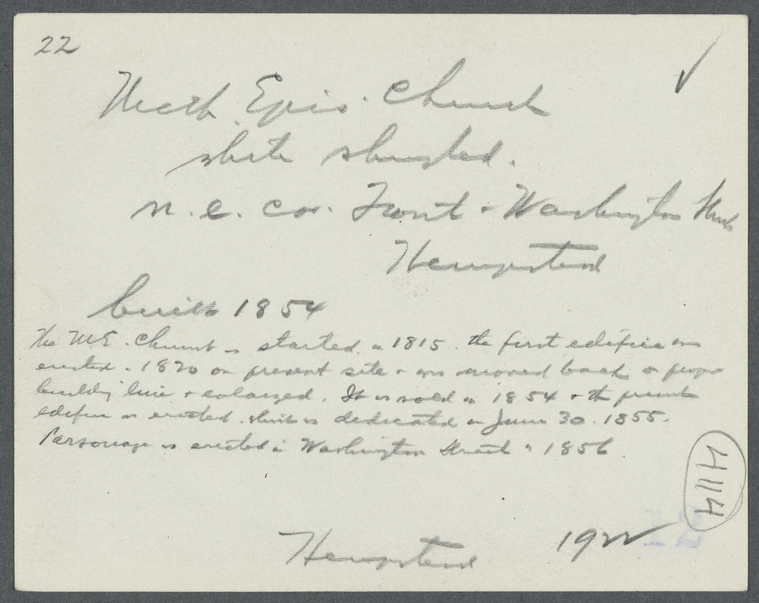 22
Meth. Epis. Church
white shingled.
n. e. cor. Front & Washington Streets
Hempstead
built 1854
The M.E. Church is started in 1815. the first edifice is
erected in 1820 on present site & was moved back on
building line & enlarged. It is sold in 1854 & the present
edifice is erected. which is dedicated on June 30. 1855.
Parsonage is erected in Washington Street in 1856.
4114
Hempstead 1922